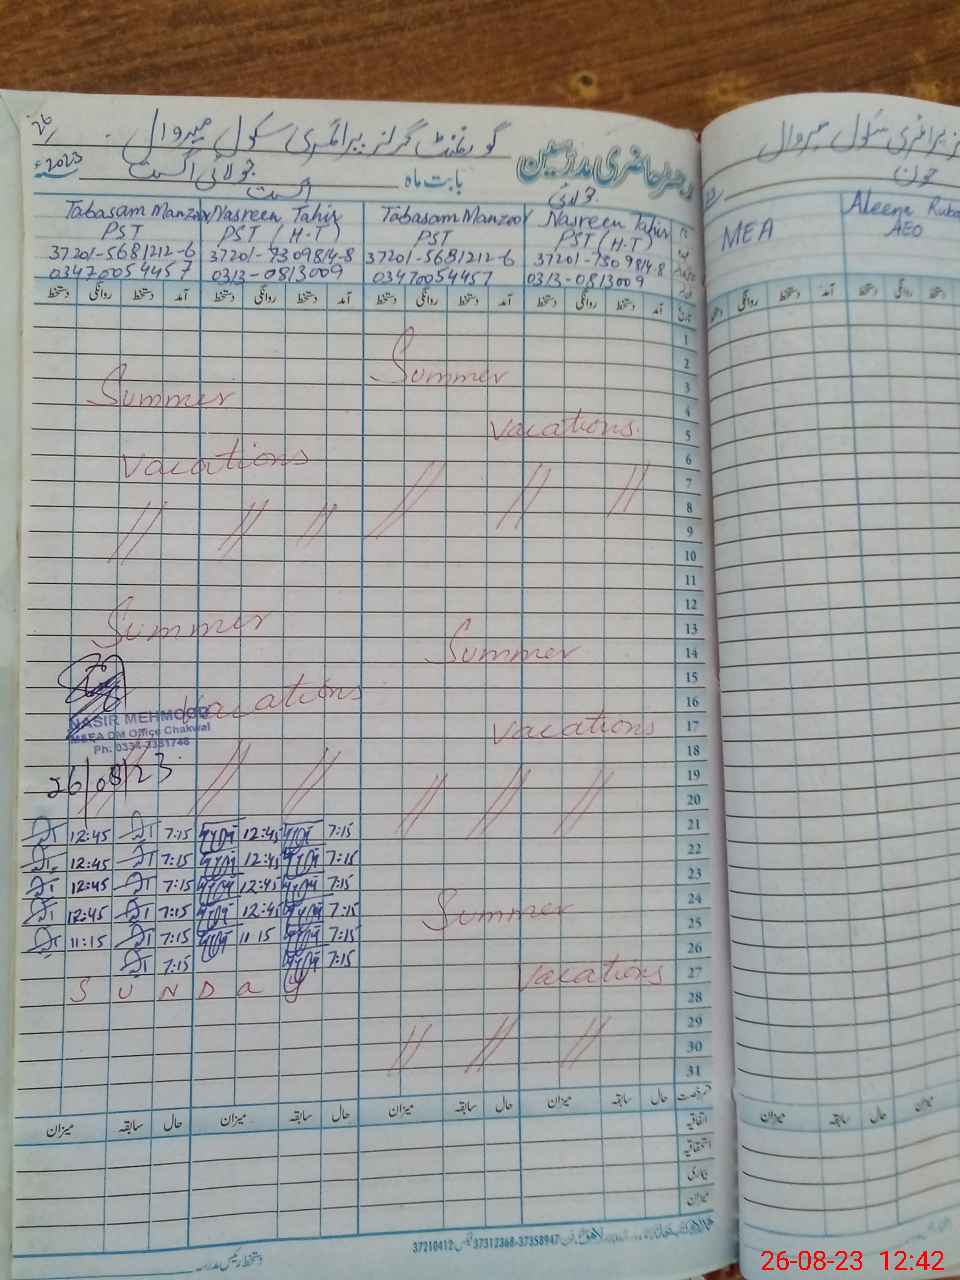 گورنمنٹ گرلز پرائمری سکول میروال
رجسٹر حاضری مدرسین
بابت ماہ
جولائی اگست
2023
جولائی
اگست
Tabasam Manzoor
PST
37201-5681212-6
03470054457
Nasreen Tahir
PST (H-T)
37201-7309814-8
0313-0813009
Tabasam Manzoor
PST
37201-5681212-6
03470054457
Nasreen Tahir
PST (H-T)
37201-7309814-8
0313-0813009
تاریخ
آمد دستخط روانگی دستخط آمد دستخط روانگی دستخط آمد دستخط روانگی دستخط آمد دستخط روانگی دستخط
1
2
3
4
5
6
7
8
9
10
11
12
13
14
15
16
17
18
19
20
21
22
23
24
25
26
27
28
29
30
31
Summer
vacations
Summer
vacations.
Summer
vacations
Summer
vacations
Summer
vacations
NASIR MEHMOOD
MEA DM Office Chakwal
26/08/23
12:45 7:15 12:45 7:15
12:45 7:15 12:45 7:15
12:45 7:15 12:45 7:15
12:45 7:15 12:45 7:15
11:15 7:15 11:15 7:15
7:15 7:15
S U N D a y
حال سابقہ میزان حال سابقہ میزان حال سابقہ میزان حال سابقہ میزان
اتفاقیہ
استحقاقیہ
بیماری
میزان
37210412 37312368-37358947
دستخط رئیس مدرسہ
جون
MEA
Aleena Ruba
AEO
دستخط روانگی
حال سابقہ میزان
26-08-23 12:42